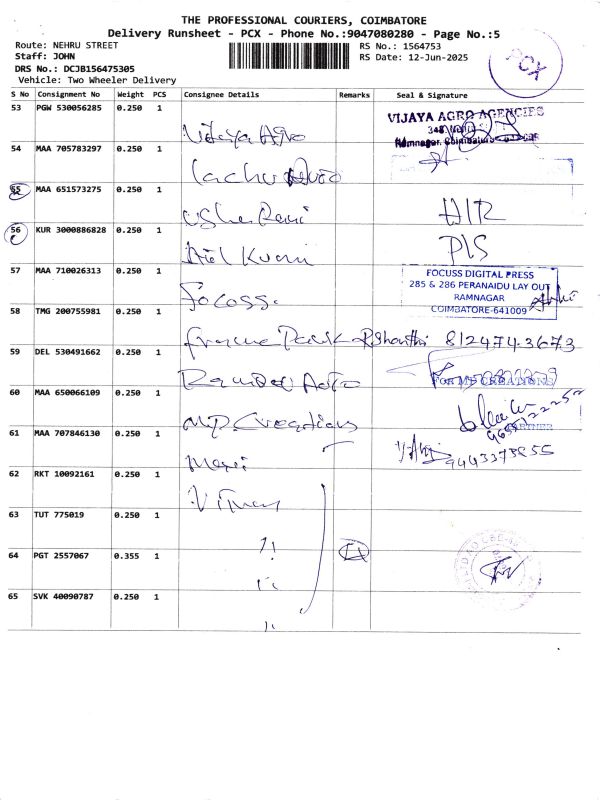 THE PROFESSIONAL COURIERS, COIMBATORE
Delivery Runsheet - PCX - Phone No.:9047080280 - Page No.:5
Route: NEHRU STREET
RS No.: 1564753
Staff: JOHN
RS Date: 12-Jun-2025
DRS No.: DCJB156475305
Vehicle: Two Wheeler Delivery
PCX
S No Consignment No Weight PCS Consignee Details Remarks Seal & Signature
53 PGW 530056285 0.250 1 Vijaya Agro VIJAYA AGRO AGENCIES
Ramnagar, Coimbatore
54 MAA 705783297 0.250 1
55 MAA 651573275 0.250 1 Usha Rani H/R
56 KUR 3000886828 0.250 1 Kumar P/S
57 MAA 710026313 0.250 1 Focoss. FOCUSS DIGITAL PRESS
285 & 286 PERANAIDU LAY OUT
RAMNAGAR
COIMBATORE-641009
58 TMG 200755981 0.250 1 8124743673
59 DEL 530491662 0.250 1 FOR MP CREATIONS
60 MAA 650066109 0.250 1 MP Creations PARTNER
61 MAA 707846130 0.250 1 Mani 9443373855
62 RKT 10092161 0.250 1
63 TUT 775019 0.250 1 11
64 PGT 2557067 0.355 1 11
65 SVK 40090787 0.250 1 11